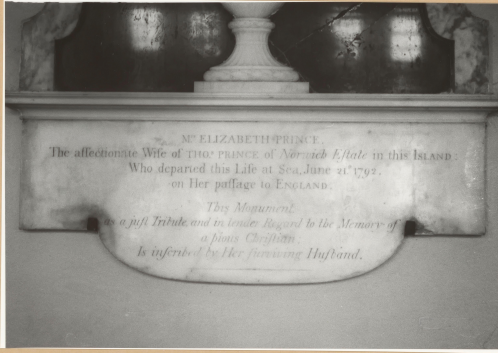 Mrs ELIZABETH PRINCE.
The affectionate Wife of THOs PRINCE of Norwich Eſtate in this ISLAND:
Who departed this Life at Sea, June 21st 1792.
on Her paſſage to ENGLAND.
This Monument
as a juſt Tribute, and in tender Regard to the Memory of
a pious Chriſtian:
Is inſcribed by Her ſurviving Huſband.